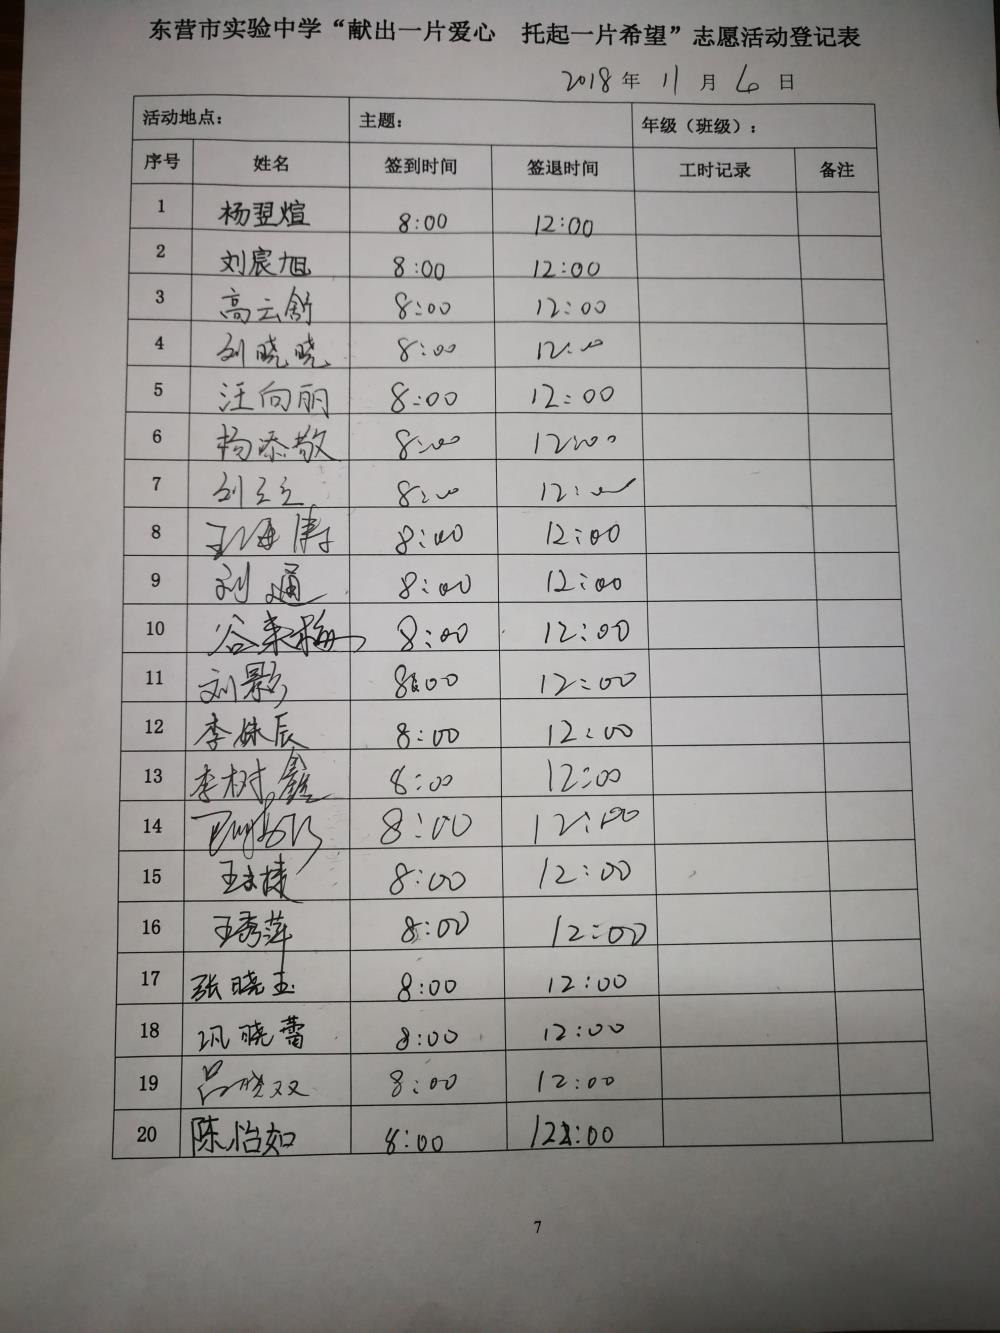 东营市实验中学“献出一片爱心 托起一片希望”志愿活动登记表
2018 年 11 月 6 日
活动地点： 主题： 年级（班级）：
序号 姓名 签到时间 签退时间 工时记录 备注
1 杨翌煊 8:00 12:00
2 刘宸旭 8:00 12:00
3 高云舒 8:00 12:00
4 刘晓晓 8:00 12:00
5 汪向丽 8:00 12:00
6 杨添敬 8:00 12:00
7 刘立立 8:00 12:00
8 王海涛 8:00 12:00
9 刘通 8:00 12:00
10 谷来梅 8:00 12:00
11 刘影 8:00 12:00
12 李姝辰 8:00 12:00
13 李树鑫 8:00 12:00
14 8:00 12:00
15 8:00 12:00
16 王秀萍 8:00 12:00
17 张晓玉 8:00 12:00
18 巩晓蕾 8:00 12:00
19 吕晓双 8:00 12:00
20 陈怡如 8:00 12:00
7